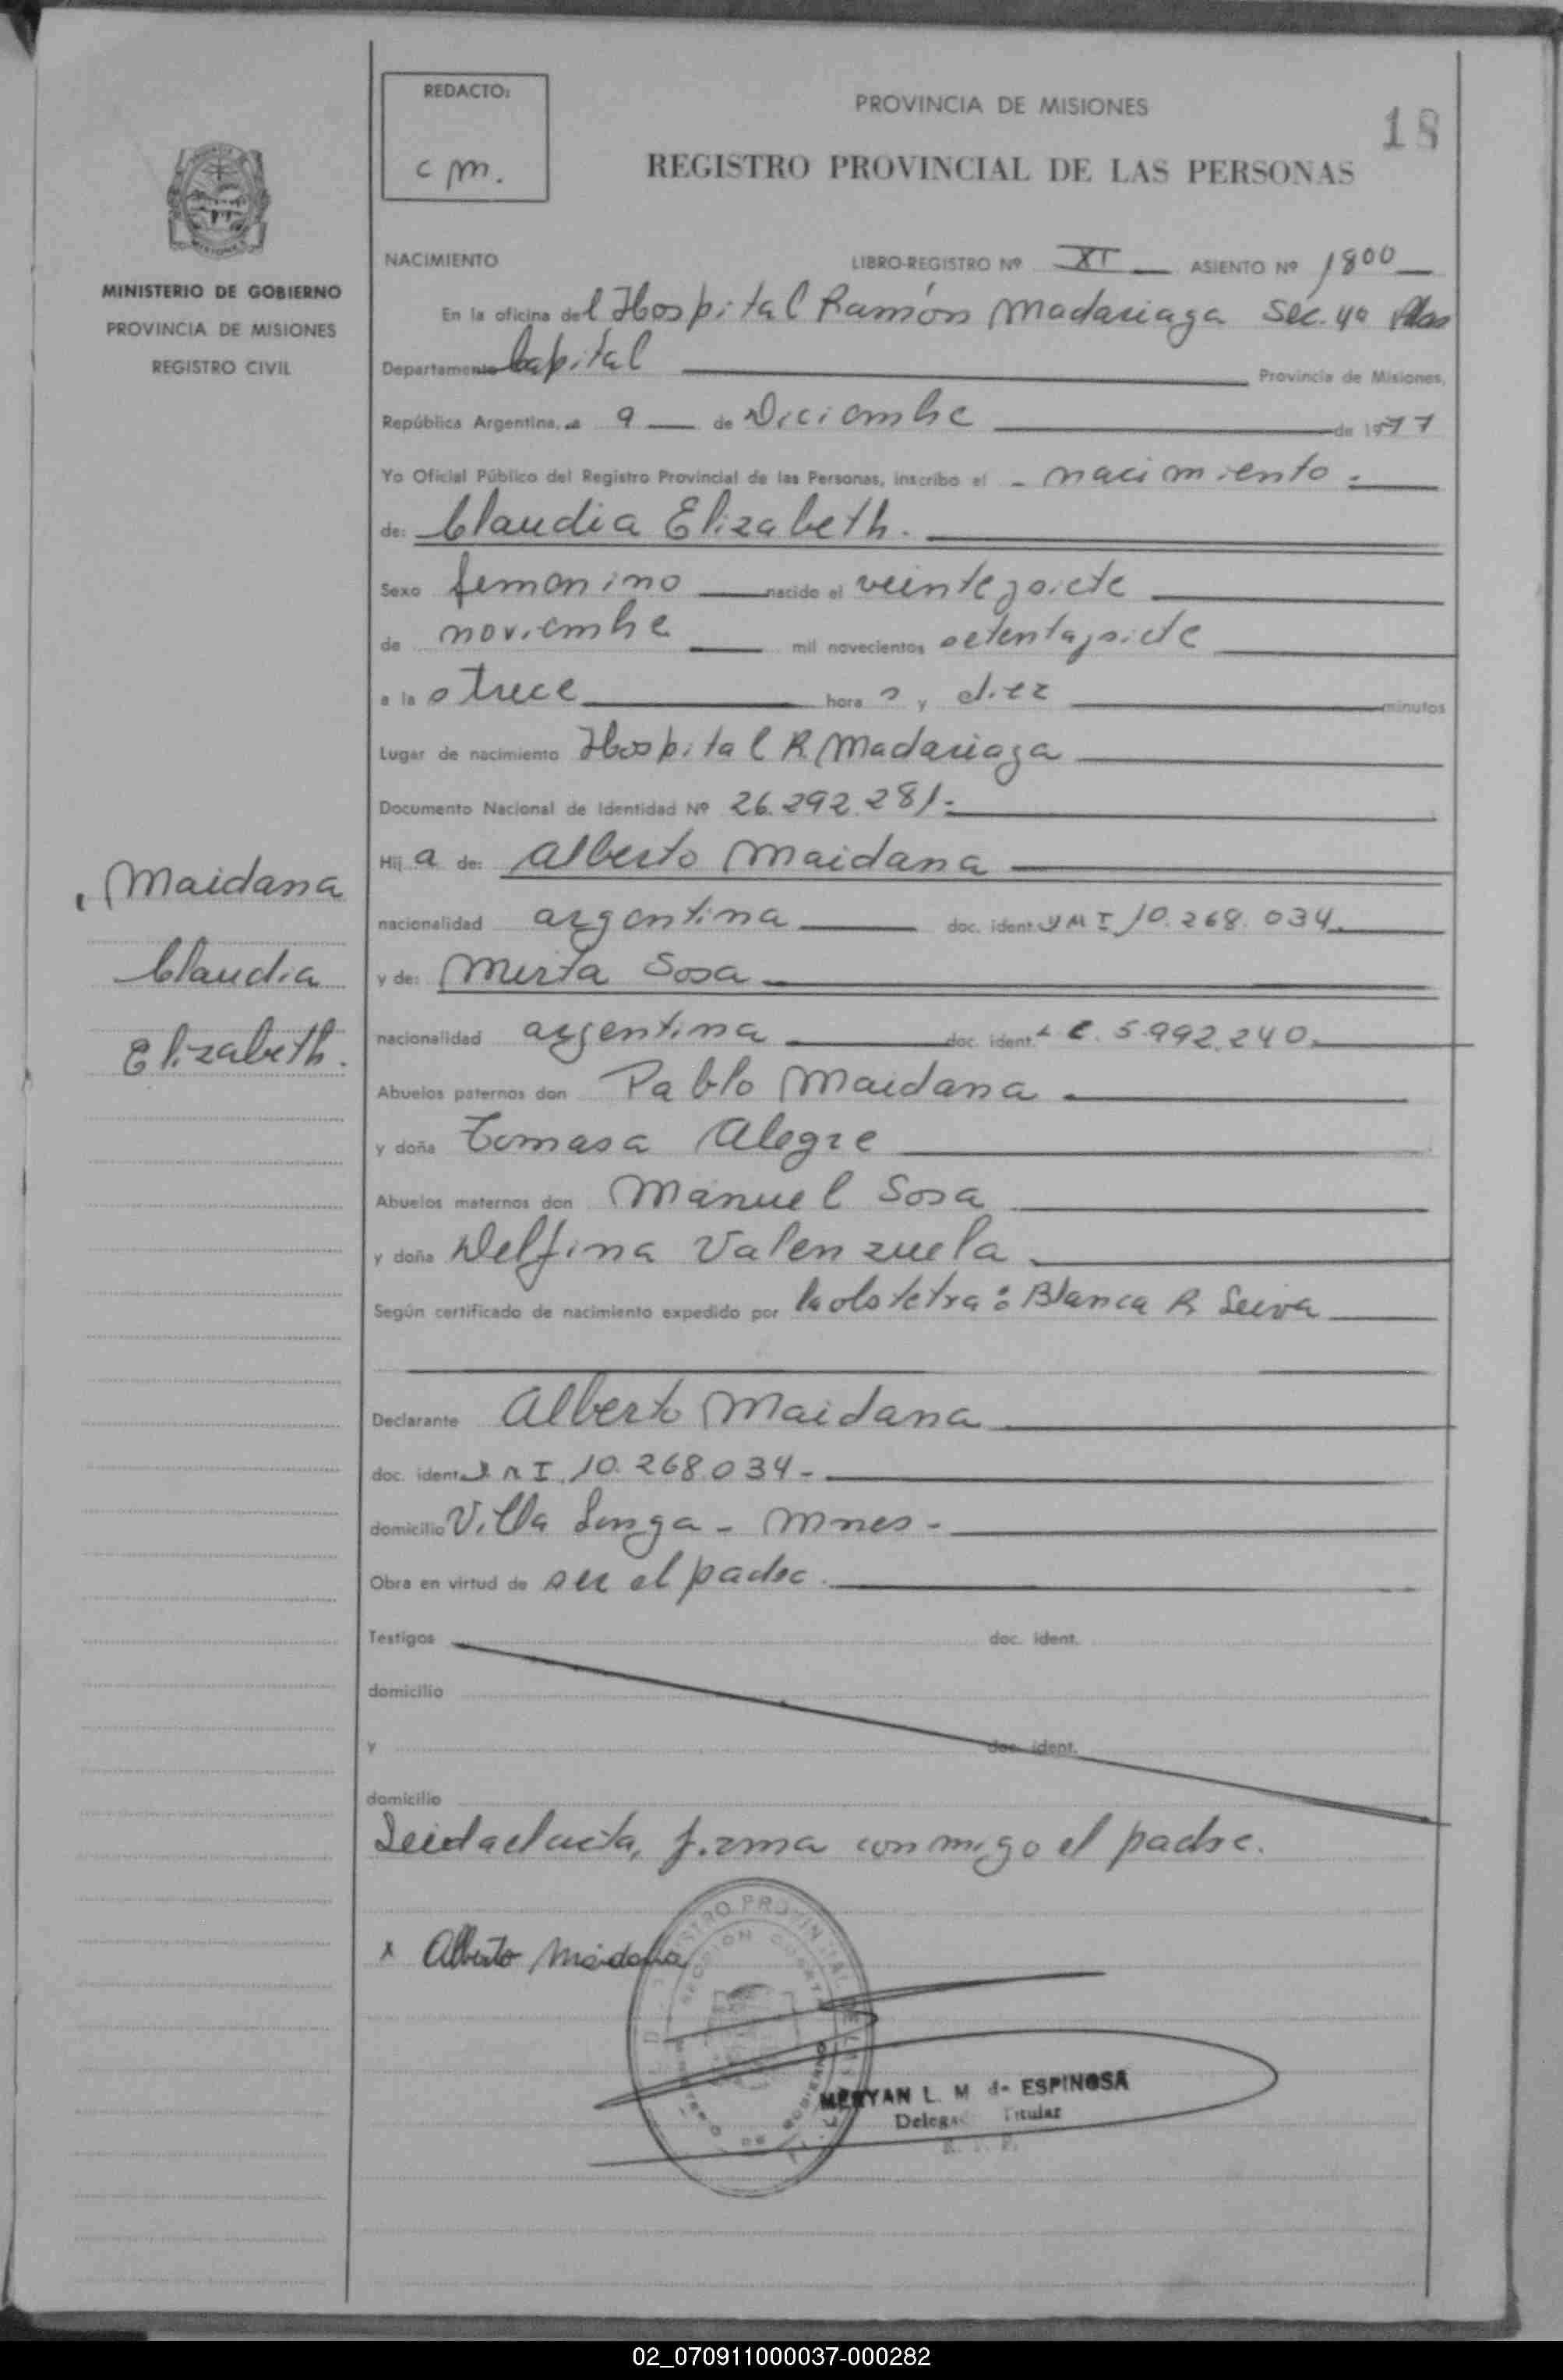 REDACTO:
c m.
PROVINCIA DE MISIONES
18
REGISTRO PROVINCIAL DE LAS PERSONAS
MINISTERIO DE GOBIERNO
PROVINCIA DE MISIONES
REGISTRO CIVIL
NACIMIENTO LIBRO-REGISTRO Nº XI ASIENTO Nº 1800
En la oficina del Hospital Ramón Madariaga Sec. 4a Pdas
Departamento Capital Provincia de Misiones,
República Argentina, a 9 de Diciembre de 1977
Yo Oficial Público del Registro Provincial de las Personas, inscribo el - nacimiento -
de: Claudia Elizabeth.
Sexo femenino nacido el veintesiete
de noviembre mil novecientos setentaysiete
a la s trece hora s y diez minutos
Lugar de nacimiento Hospital R. Madariaga
Documento Nacional de Identidad Nº 26.292.281.-
Hij a de: Alberto Maidana
nacionalidad argentina doc. ident. DNI 10.268.034.
y de: Mirta Sosa
nacionalidad argentina doc. ident. L C. 5.992.240.
Abuelos paternos don Pablo Maidana
y doña Tomasa Alegre
Abuelos maternos don Manuel Sosa
y doña Delfina Valenzuela
Según certificado de nacimiento expedido por la obstetra: Blanca R. Leiva
Declarante Alberto Maidana
doc. ident. DNI. 10.268.034-
domicilio Villa Longa - Mnes -
Obra en virtud de ser el padre.
Testigos doc. ident.
domicilio
y doc. ident.
domicilio
Leida el acta, firma conmigo el padre.
x Alberto Maidana
Maidana
Claudia
Elizabeth.
REGISTRO PROVINCIAL DE LAS
SECCION CUARTA
MINISTERIO DE GOBIERNO
MERYAN L. M de ESPINOSA
Delegado Titular
R. P. P.
02_070911000037-000282